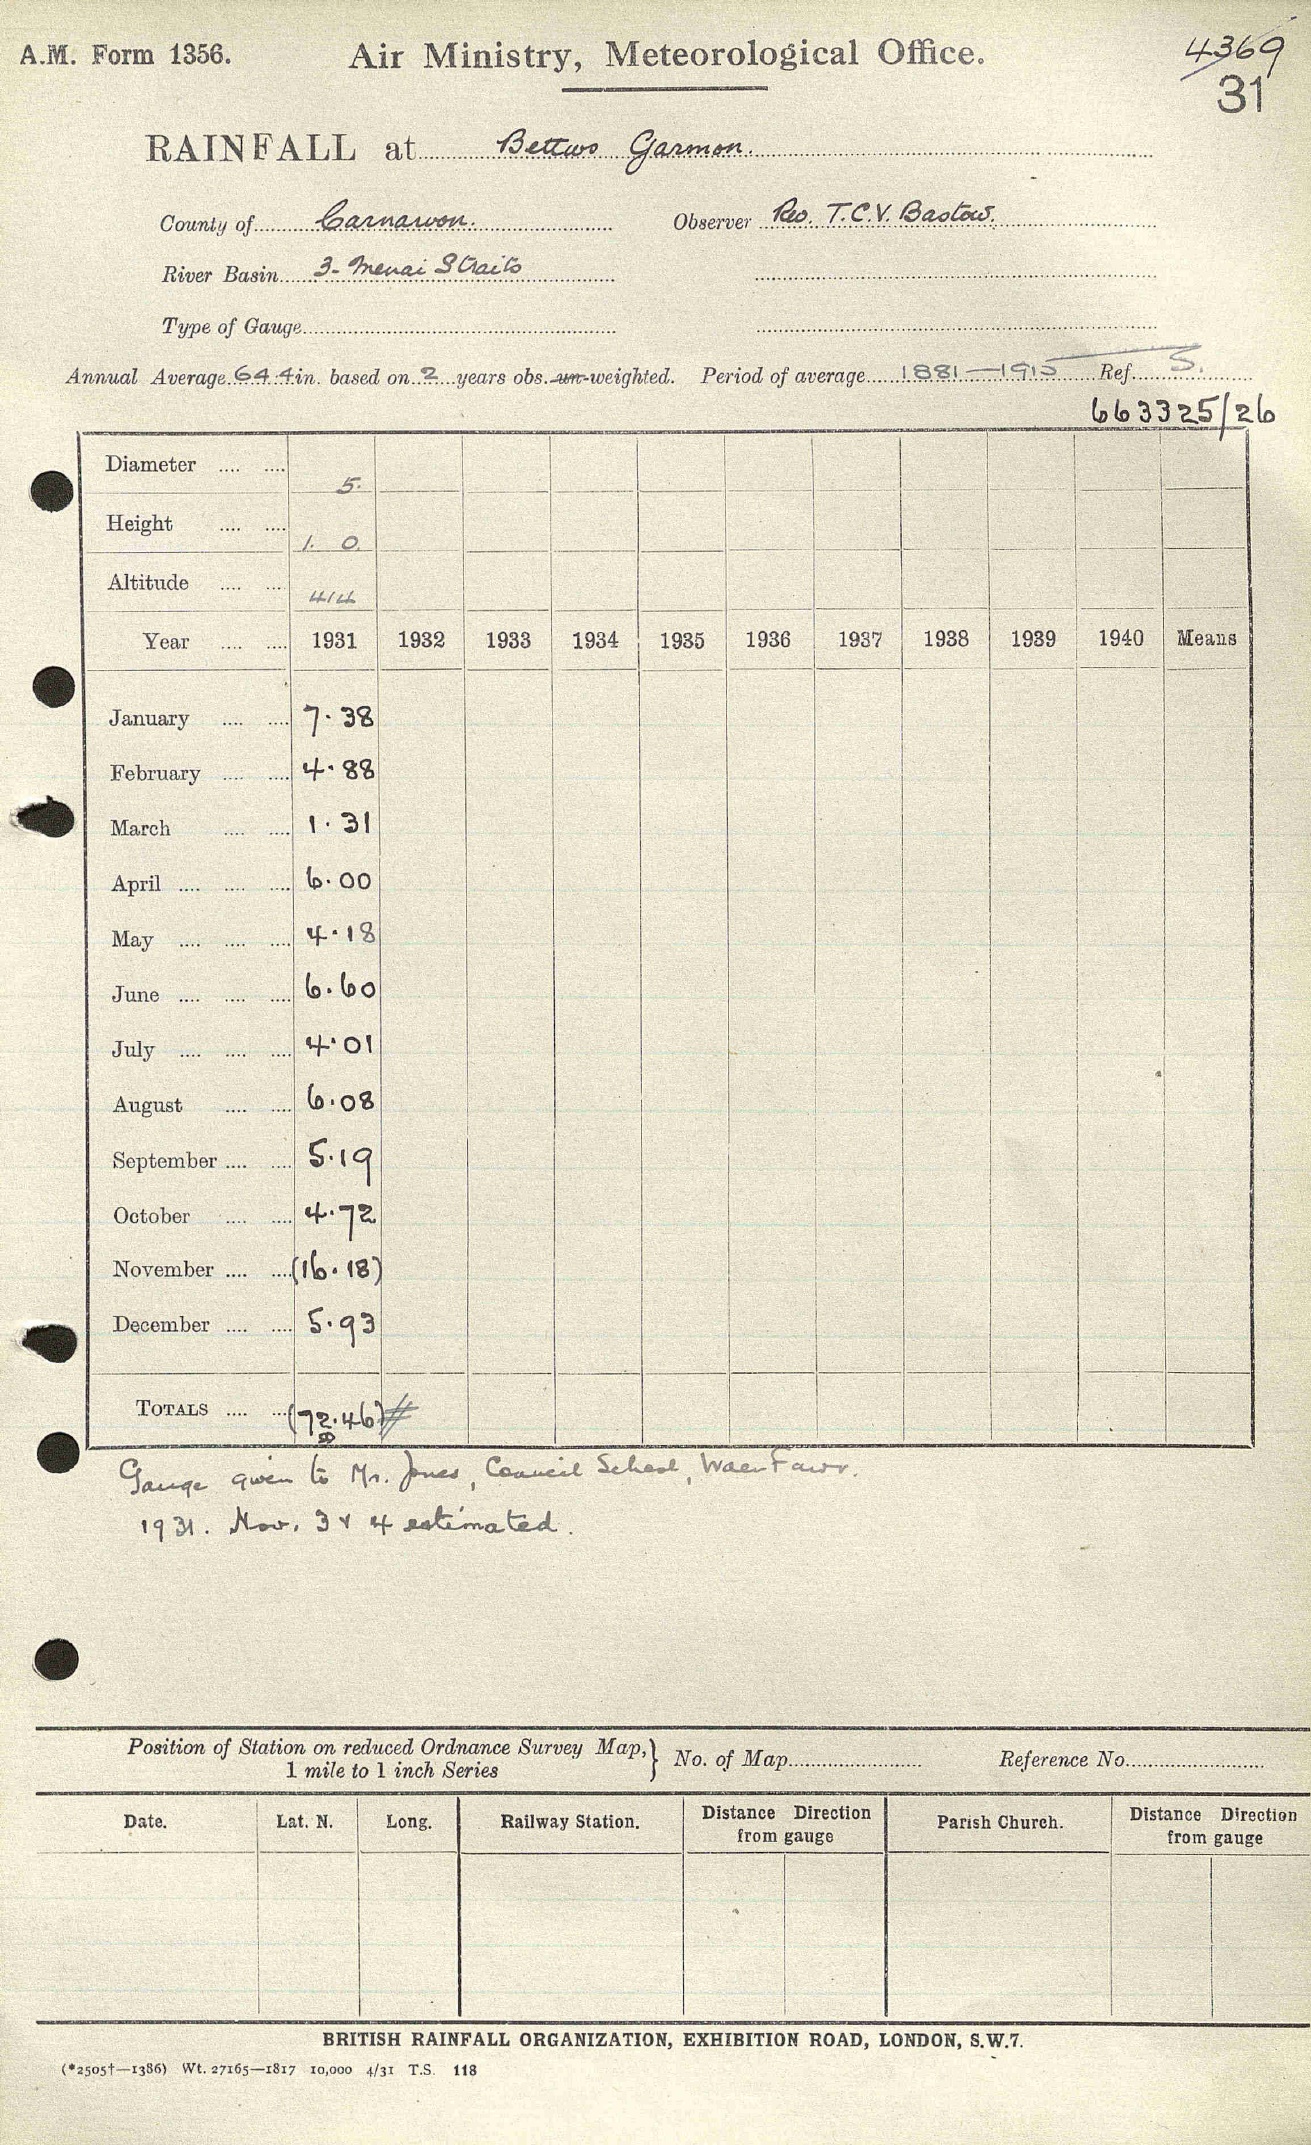 A.M. Form 1356. Air Ministry, Meteorological Office. 4369
31
RAINFALL at Bettws Garmon.
County of Carnarvon. Observer Rev. T.C.V. Bastow.
River Basin 3 - Menai Straits
Type of Gauge
Annual Average 64.4 in. based on 2 years obs. un-weighted. Period of average 1881—1915 Ref. S.
663325/26
Diameter .... .... 5.
Height .... .... 1. 0.
Altitude .... .... 414
Year .... .... 1931 1932 1933 1934 1935 1936 1937 1938 1939 1940 Means
January .... .... 7.38
February .... .... 4.88
March .... .... 1.31
April .... .... .... 6.00
May .... .... .... 4.18
June .... .... .... 6.60
July .... .... .... 4.01
August .... .... 6.08
September .... .... 5.19
October .... .... 4.72
November .... .... (16.18)
December .... .... 5.93
TOTALS .... .... (72.46) #
Gauge given to Mr. Jones, Council School, Waenfawr.
1931. Nov. 3 & 4 estimated.
Position of Station on reduced Ordnance Survey Map, } No. of Map Reference No.
1 mile to 1 inch Series
Date. Lat. N. Long. Railway Station. Distance Direction from gauge Parish Church. Distance Direction from gauge
BRITISH RAINFALL ORGANIZATION, EXHIBITION ROAD, LONDON, S.W.7.
(*2505†—1386) Wt. 27165—1817 10,000 4/31 T.S. 118